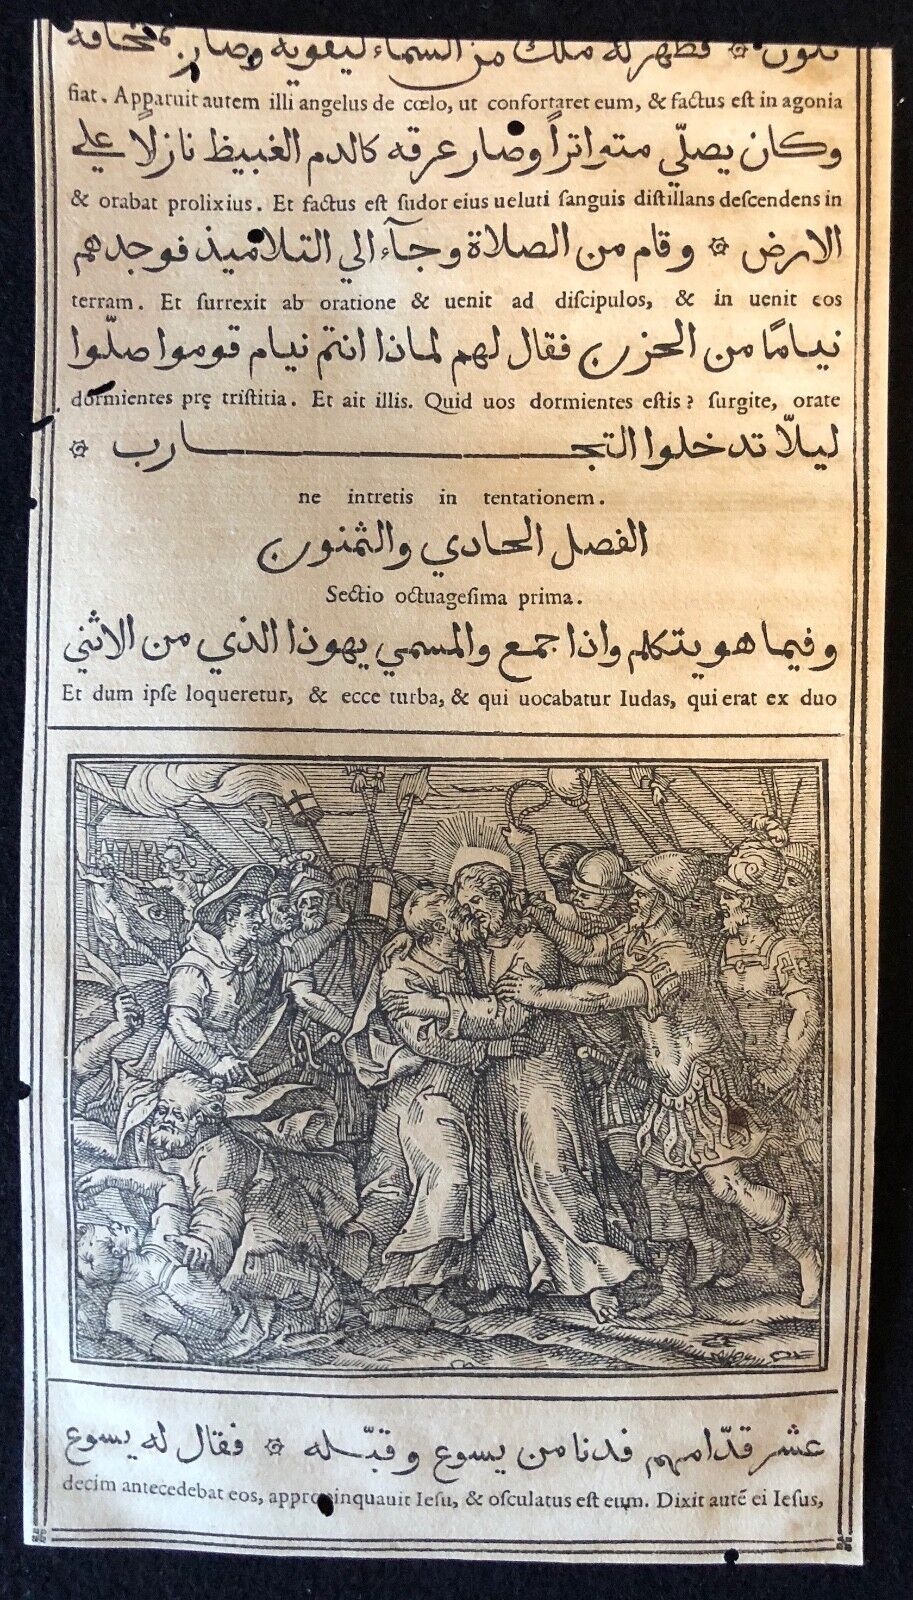 فظهر له ملك من السماء ليقويه وصار
fiat. Apparuit autem illi angelus de cœlo, ut confortaret eum, & factus eſt in agonia
وكان يصلّي متواتراً وصار عرقه كالدم الغبيظ نازلاً علي
& orabat prolixius. Et factus eſt ſudor eius ueluti ſanguis diſtillans deſcendens in
الارض ۞ وقام من الصلاة وجآء الي التلاميذ فوجدهم
terram. Et ſurrexit ab oratione & uenit ad diſcipulos, & in uenit eos
نيامًا من الحزن فقال لهم لماذا انتم نيام قوموا صلّوا
dormientes prę triſtitia. Et ait illis. Quid uos dormientes eſtis? ſurgite, orate
ليلاّ تدخلوا التجـــــارب ۞
ne intretis in tentationem.
الفصل الحادي والثمنون
Sectio octuageſima prima.
وفيما هو يتكلم واذا جمع والمسمي يهوذا الذي من الاثني
Et dum ipſe loqueretur, & ecce turba, & qui uocabatur Iudas, qui erat ex duo
عشر قدّامهم فدنا من يسوع وقبّله ۞ فقال له يسوع
decim antecedebat eos, appropinquauit Ieſu, & oſculatus eſt eum. Dixit autẽ ei Ieſus,